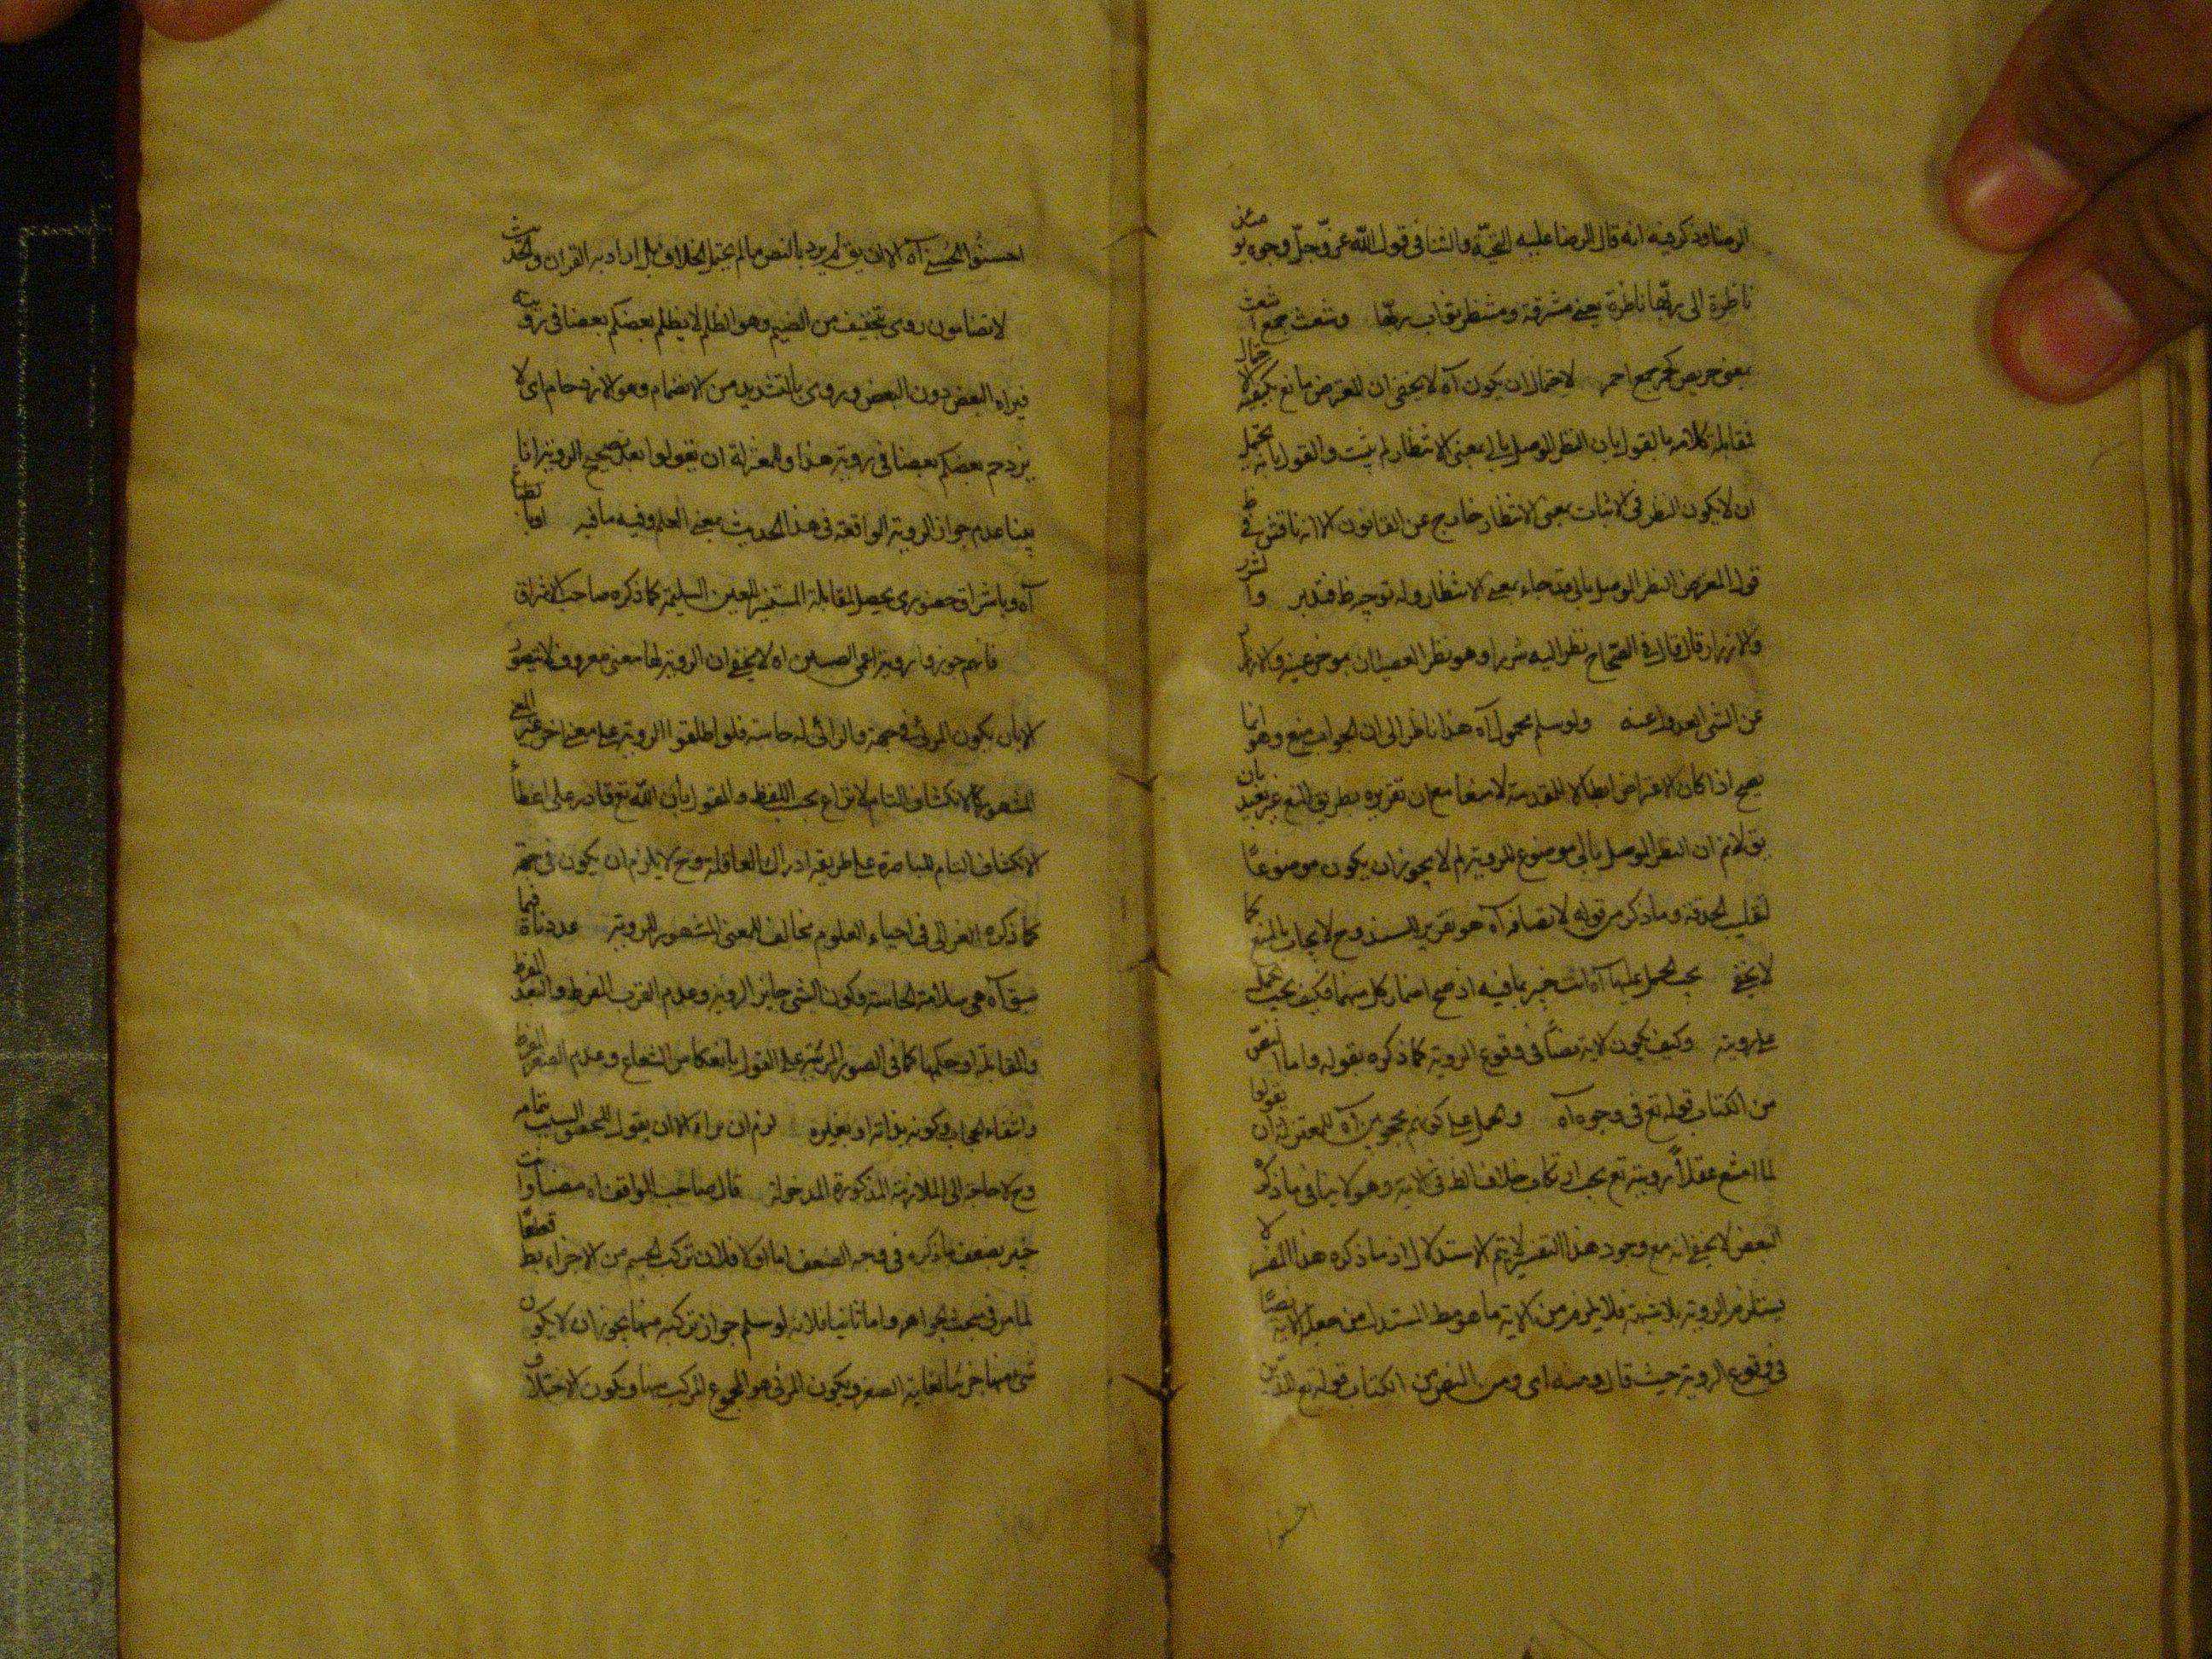 الرضا وذكر فيه انه قال الرضا عليه التحيّة والثنا في قول الله عزّ وجلّ وجوه يومئذ
ناظرة الى ربّها ناظرة يعنى مشرقة ومنتظر ثواب ربّها وشعث جمع اشعث
بمعنى حريص كحمر جمع احمر لاحتمال ان يكون آه لا يخفى ان المعترض مانع يكفيه الاحتمال
فمقابلة كلامه بالقول بان النظر الموصل بالى بمعنى الانتظار لم يثبت والقول بانه يحتمل
ان لا يكون النظر في الاثبات بمعنى الانتظار خارج عن القانون الا انه ناقش في
قول المعترض النظر الموصل بالى قد جاء بمعنى الانتظار وله توجيه ظ فتدبر والشزر
والازورار قال قال في الصّحاح نظر اليه شزرا وهو نظر الغضبان بموخر عينه والازورار
عن الشئ العدول عنه ولو سلم فمحمول آه هذا ناظر الى ان الجواب منع وهو انما
يصح اذا كان الاعتراض ابطالا للمقدمة لا منعا مع ان تقريره بطريق المنع غير بعيد بان
يق لانم ان النظر الموصل بالى موضوع للروية لم لا يجوز ان يكون موضوعًا
لتقليب الحدقة وما ذكر من قوله لاتصافه آه هو تقرير للسند وح لا يجاب بالمنع كما
لا يخفى يجب الحمل عليها آه انت خبير بما فيه اذ صح اضمار كل منهما فكيف يجب الحمل
على روية وكيف يكون الاية نصًّا في وقوع الروية كما ذكره بقوله واما النصّ
من الكتاب قوله تع في وجوه آه والحمل على كونهم محجوبين آه للمعتزلة ان يقولوا
لما امتنع عقلاً رويته تع يجب ارتكاب خلاف الظ في الاية وهو لا ينافى ما ذكره
البعض لا يخفى انه مع وجود هذا التفسير لا يتم الاستدلال اذ ما ذكره هذا المفسر لا
يستلزم الروية بلا شبهة فلا يلزم من الاية ما هو مط المستدل من جعل الاية نصًّا
في وقوع الروية حيث قال ومنه اى ومن النص من الكتاب قوله تع للذين
احسنوا
احسنُوا الحُسنى آه الا ان يق لم يرد بالنص ما لم يحتمل الخلاف بل اراد به القران والحديث
لا تضامون روى بتخفيف من الضيم وهو الظلم لا يظلم بعضكم بعضا في رويته
فيراه البعض دون البعض وروى بالتشديد من الانضمام وهو الازدحام اى لا
يزدحم بعضكم بعضا في روية هذا وللمعتزلة ان يقولوا بعد تصحيح الروية انا
بينا عدم جواز الروية الواقعة في هذا الحديث بمعنى العلم وفيه ما فيه او بانطباع
آه وباشراق حضورى يحصل لمقابلة المستنير للعين السليمة كما ذكره صاحب الاشراق
فانهم جوزوا روية اعمى الصين اه لا يخفى ان الروية لها معنى معروف لا يتصوّر
الا بان يكون المرئى في جهة والرائى له حاسة فلو اطلقوا الروية على معنى اخر غير المعنى
المشهور كالانكشاف التام لا نزاع بحسب اللفظ والقول بان الله تع قادر على اعطاء
الانكشاف التام للباصرة على طريقة ادراك العاقلة وح لا يلزم ان يكون في جهة
كما ذكره الغزالى في احياء العلوم مخالف للمعنى المشهور للروية عددناه فيما
سبق آه هى سلامة الحاسة وكون الشئ جايز الروية وعدم القرب المفرط والبعد المفرط
والمقابلة او حكمها كما في الصور المرئية على القول بانعكاس الشعاع وعدم الصغر المفرط
وانتفاء الحجاب وكونه بذاته او بغيره لزم ان نراه الا ان يقول بتحقق السبب بتمامه
وح لا حاجة الى الملازمة المذكورة المدخولة قال صاحب المواقف اه مصنا وانت
خبير بضعف ما ذكره في وجه الضعف اما اولا فلان تركب الجسم من الاجزاء بط قطعًا
لما مر في مبحث الجواهر واما ثانيا فلانه لو سلم جواز تركبه منها يجوز ان لا يكون
شئ منها مرئيا لغاية الصغر ويكون المرئى هو المجموع المركب منها ويكون الاختلاف